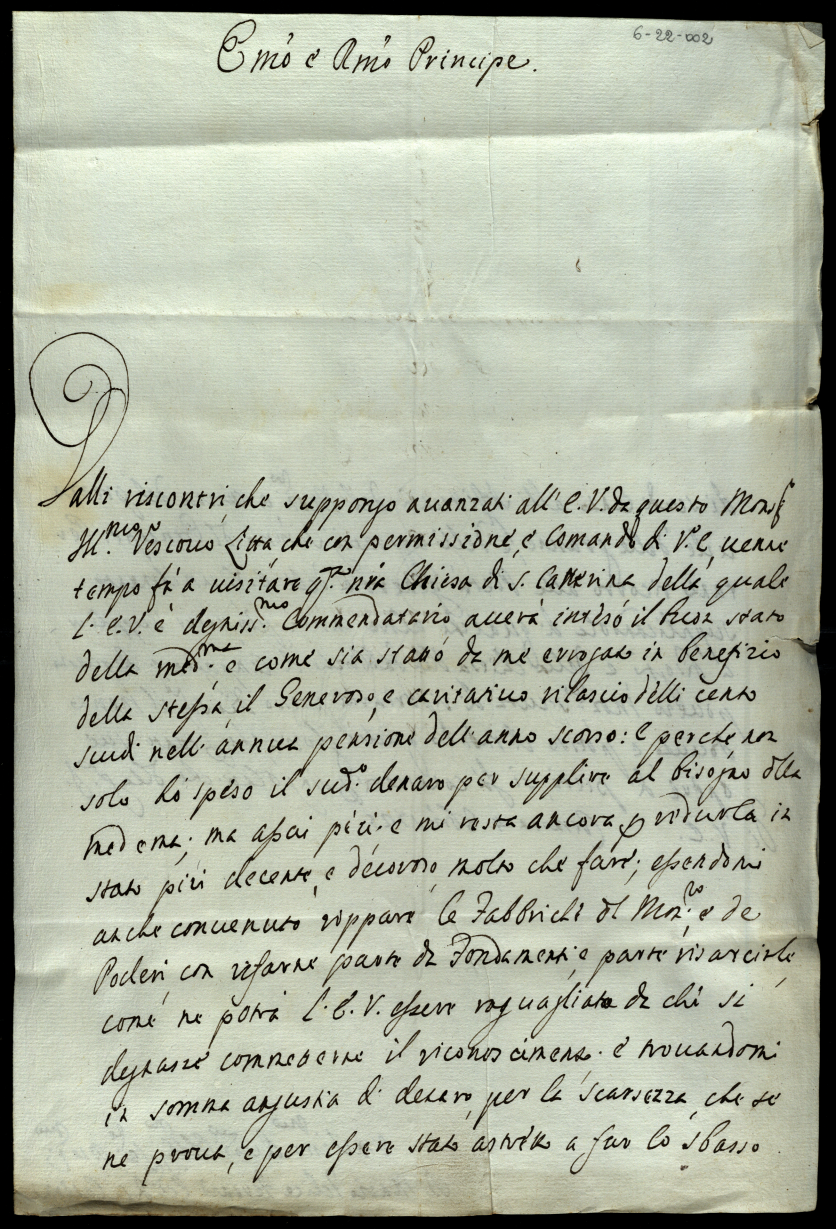 6-22-002
Emõ e Rmõ Principe.
Dalli riscontri, che suppongo avanzati all' E.V. da questo Mons.r
Ill.mo Vescovo Litta che con permissione, e Comando di V.E. venne
tempo fà a visitare q.ta nr̃a Chiesa di S. Catterina della quale
l' E.V. è degniss.mo Commendatario averà inteso il buon stato
della med.ma e come sia stato da me errogato in benefizio
della stessa il Generoso, e caritativo rilascio delli cento
scudi nell' annua pensione dell' anno scorso: e perche non
solo hò speso il sud.o denaro per supplire al bisogno dlla
medema; ma assai più; e mi resta ancora p ridurla in
stato più decente, e decoroso molto che fare; essendomi
anche convenuto rippare le Fabbriche dl Mon.ro e de
Poderi con rifarne parte da Fondamenti e parte risarcirle
come ne potrà l' E.V. essere raguagliata da chi si
degnasse commetterne il riconoscimento. e trovandomi
in somma angustia di denaro per la scarsezza, che se
ne prova, e per essere stato astretto a far lo sbasso